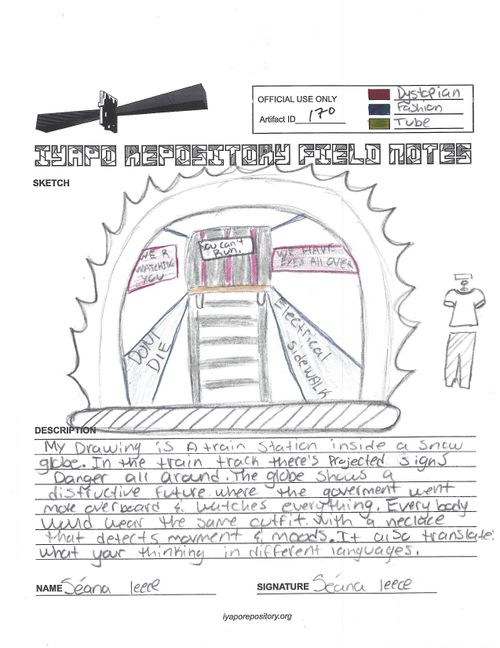 OFFICIAL USE ONLY
Artifact ID 170
Dystopian
Fashion
Tube
IYAPO REPOSITORY FIELD NOTES
SKETCH
You can't
Run.
WE R
WATCHING
YOU
WE HAVE
EYES All OVER
DONT
DIE
Electrical
SideWALK
DESCRIPTION
My Drawing is A train Station inside a Snow
globe. In the train track there's Projected Signs
Danger all around. The globe shows a
distructive future where the goverment went
more overboard & watches everything. Every body
would wear the same outfit with a neclace
that detects movment & moods. It also translates
what your thinking in different languages.
NAME Séana leece
SIGNATURE Séana leece
iyaporepository.org